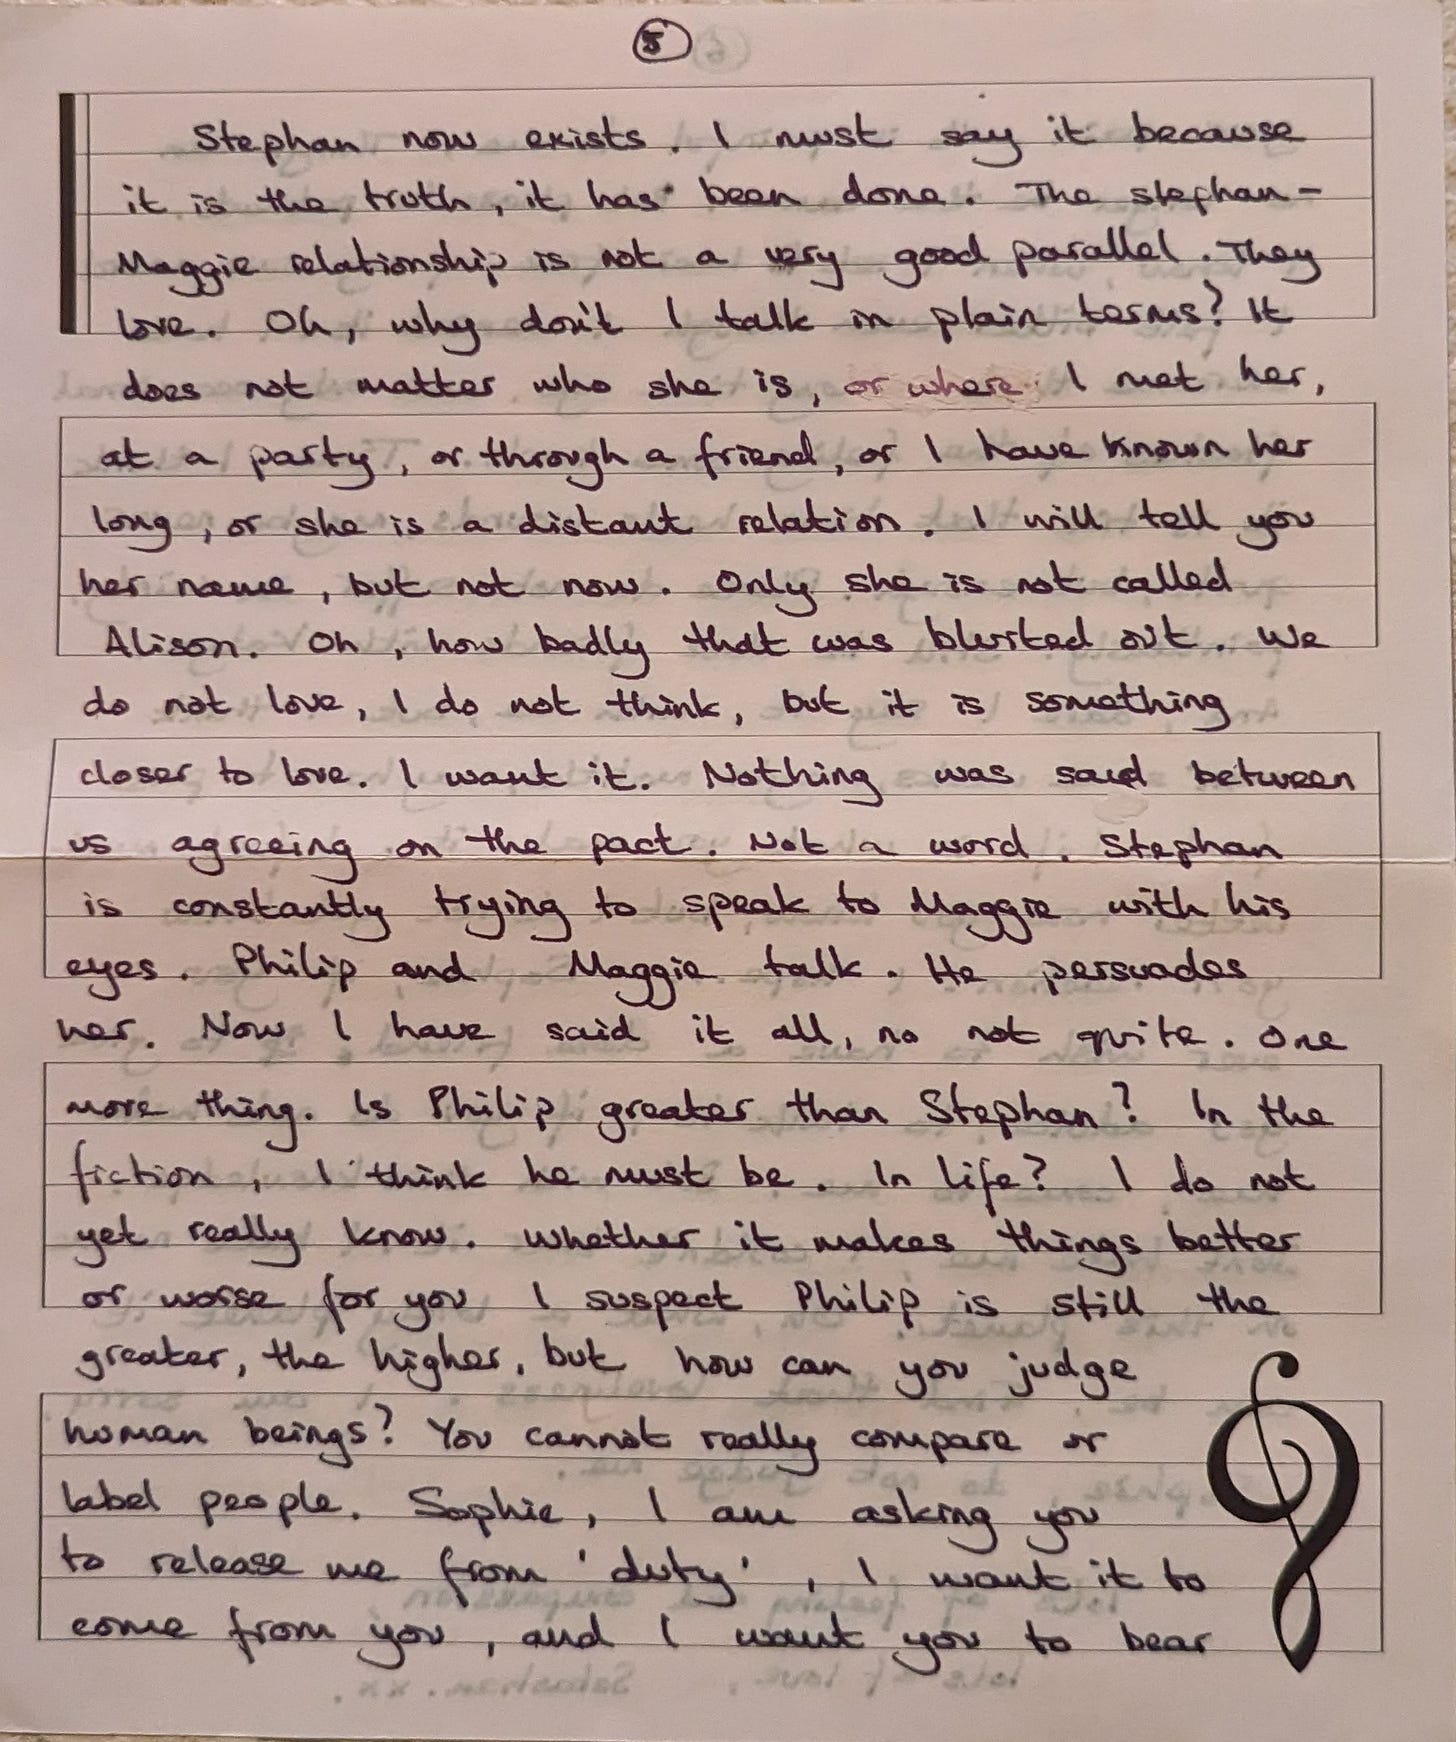 5
Stephan now exists. I must say it because
it is the truth, it has been done. The stephan -
Maggie relationship is not a very good parallel. They
love. Oh, why don't I talk in plain terms? It
does not matter who she is, or where I met her,
at a party, or through a friend, or I have known her
long, or she is a distant relation. I will tell you
her name, but not now. Only she is not called
Alison. Oh, how badly that was blurted out. We
do not love, I do not think, but it is something
closer to love. I want it. Nothing was said between
us agreeing on the pact. Not a word. Stephan
is constantly trying to speak to Maggie with his
eyes. Philip and Maggie talk. He persuades
her. Now I have said it all, no not quite. One
more thing. Is Philip greater than Stephan? In the
fiction, I think he must be. In life? I do not
yet really know. Whether it makes things better
or worse for you I suspect Philip is still the
greater, the higher, but how can you judge
human beings? You cannot really compare or
label people. Sophie, I am asking you
to release me from 'duty', I want it to
come from you, and I want you to bear